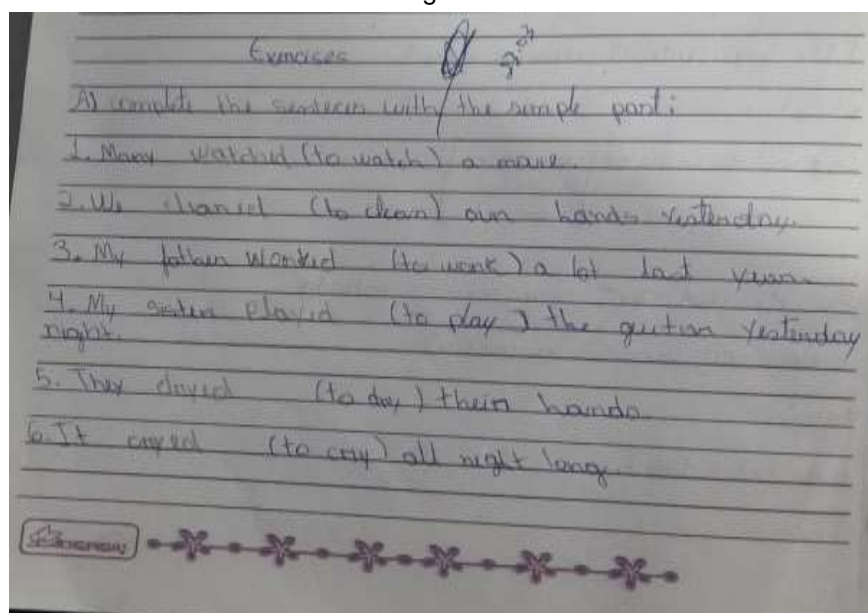 Exercises
A) complete the sentences with the simple past:
1. Mary watched (to watch) a movie.
2. We cleaned (to clean) our hands yesterday.
3. My father worked (to work) a lot last year.
4. My sister played (to play) the guitar yesterday
night.
5. They dryed (to dry) their hands.
6. It cryed (to cry) all night long.